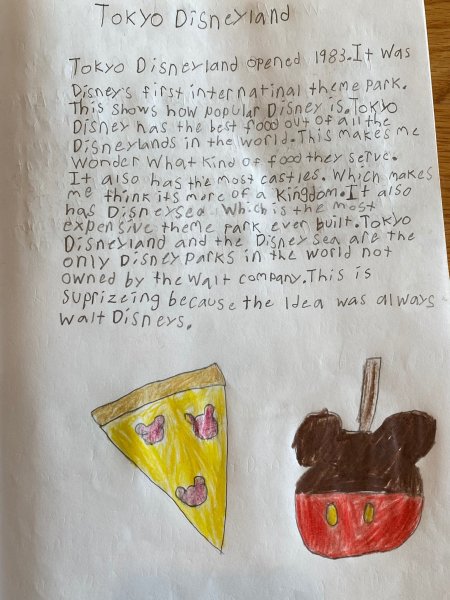 Tokyo Disneyland
Tokyo Disneyland opened 1983.It was
Disney's first internatinal theme park.
This shows how popular Disney is.Tokyo
Disney has the best food out of all the
Disneylands in the world.This makes me
wonder what kind of food they serve.
It also has the most castles. Which makes
me think its more of a kingdom.It also
has Disneysea. Which is the most
expensive theme park ever built.Tokyo
Disneyland and the Disney Sea are the
only Disney Parks in the world not
owned by the Walt company.This is
suprizeing because the Idea was always
Walt Disneys.